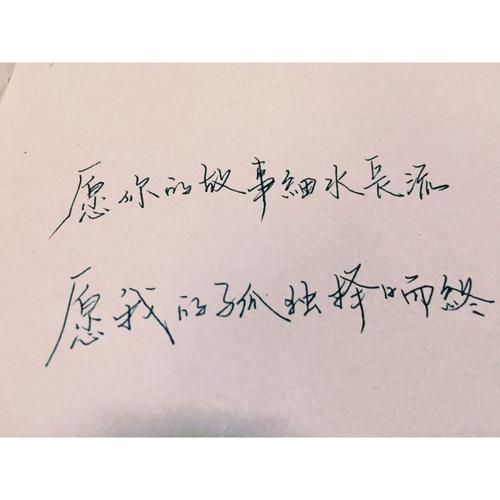 愿你的故事細水長流
愿我的孤独择晌而終